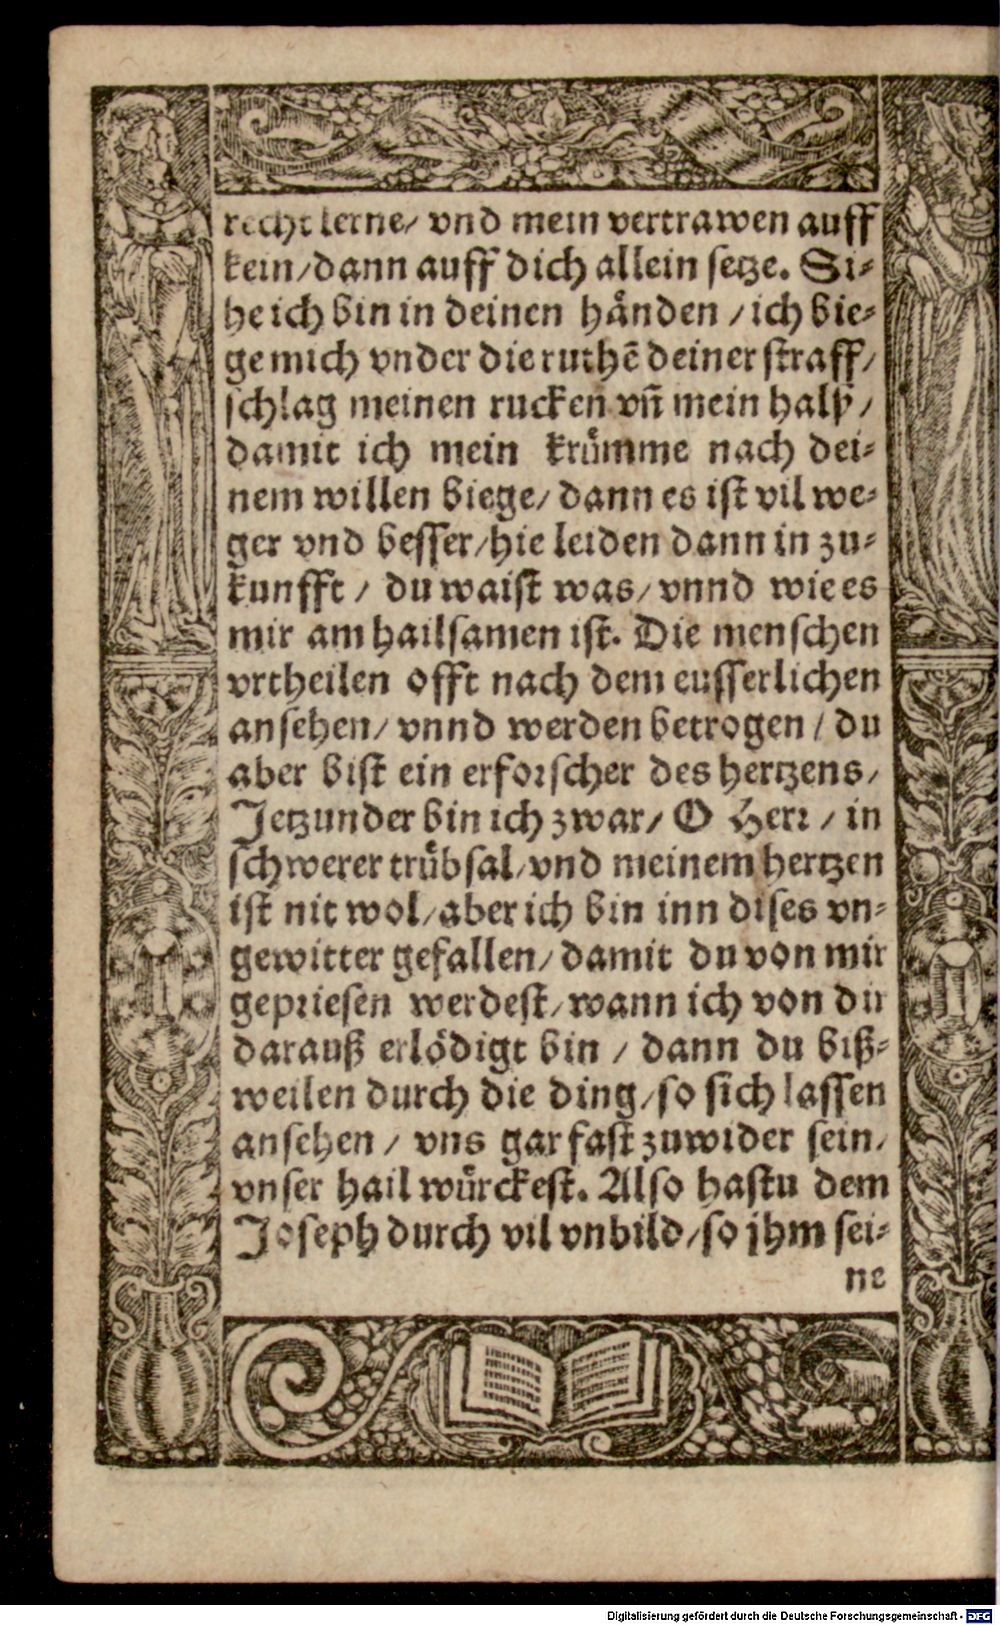 recht lerne/ vnd mein vertrawen auff
kein/dann auff dich allein setze. Si⸗
he ich bin in deinen hånden /ich bie⸗
ge mich vnder die ruthē deiner straff/
schlag meinen rucken vn̄ mein halß /
damit ich mein krům̃me nach dei⸗
nem willen biege/ dann es ist vil we⸗
ger vnd besser/hie leiden dann in zu⸗
kunfft / du waist was/ vnnd wie es
mir am hailsamen ist. Die menschen
vrtheilen offt nach dem eusserlichen
ansehen/ vnnd werden betrogen / du
aber bist ein erforscher des hertzens/
Jetzunder bin ich zwar/ O Herr / in
schwerer trůbsal/vnd meinem hertzen
ist nit wol/aber ich bin inn dises vn⸗
gewitter gefallen/ damit du von mir
gepriesen werdest/wann ich von dir
darauß erlödigt bin / dann du biß⸗
weilen durch die ding/so sich lassen
ansehen / vns gar fast zuwider sein/
vnser hail wůrckest. Also hastu dem
Joseph durch vil vnbild/so jhm sei⸗
ne
Digitalisierung gefördert durch die Deutsche Forschungsgemeinschaft - DFG